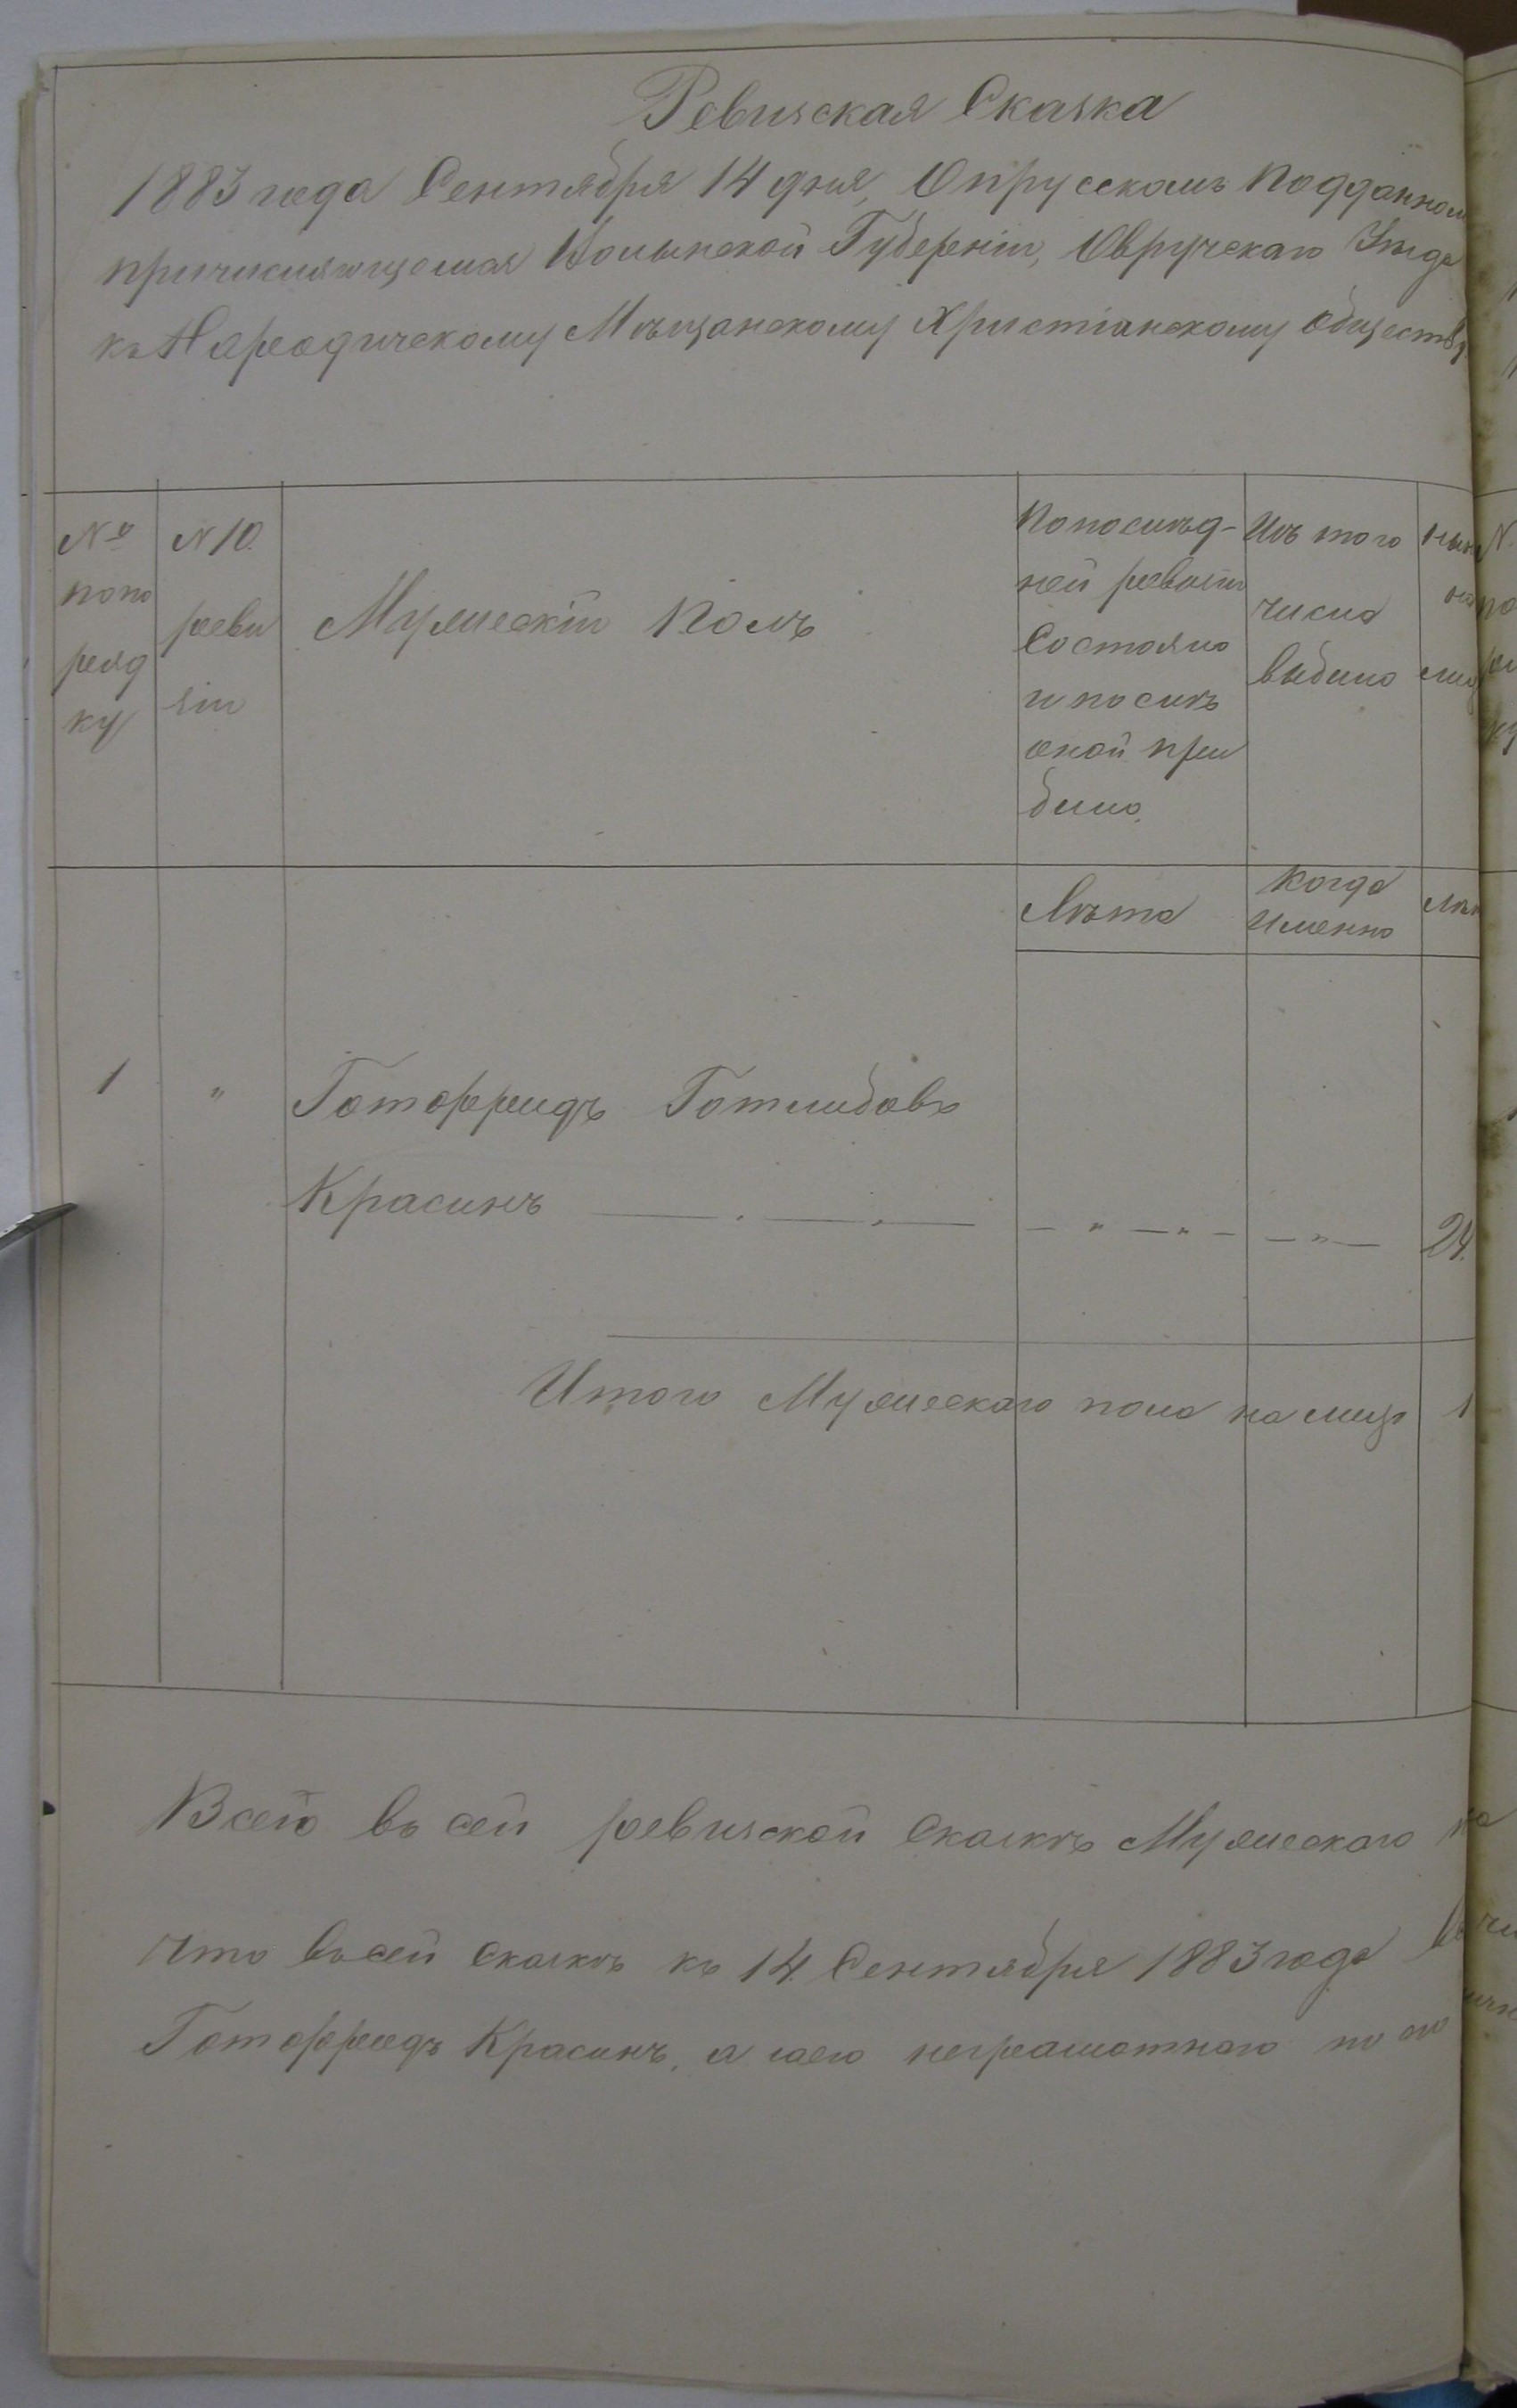 Ревизская Сказка
1883 года Сентября 14 дня, О прусскомъ подданном
причисляющемся Волынской Губерніи, Овручскаго Уѣзда
къ Народическому Мѣщанскому Христіанскому обществу
№ попо ряд ку
№ 10. реви зіи
Мужескій полъ
По послѣд-
ней ревизіи
Состояло
и послѣ
оной при
было.
Изъ того
числа
выбыло
Лѣта
когда
именно
1 " Готфридъ Готлибовъ
Красинъ — " — " — — " — 24.
Итого Мужескаго пола на лицо 1
Всего въ сей ревизской Сказкѣ Мужескаго
что въ сей Сказкѣ къ 14 Сентября 1883 года
Готфридъ Красинъ, а за его неграмотнаго по его